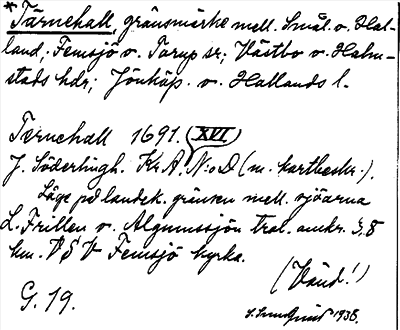 * Tärnehall gränsmärke mell. Smål. o. Hal-
land; Femsjö o. Torup sr; Västbo o. Halm-
stads hdr; Jönköp. o. Hallands l.
Ternehall 1691. (XVI)
J. Söderlingh. Kr. A. N:o D (m. kartbeskr.).
Läge på landsk. gränsen mell. sjöarna
L. Frillen o. Algunnssjön trol. omkr. 3,8
km. VSV Femsjö kyrka.
(Vänd!)
G. 19.
1938.